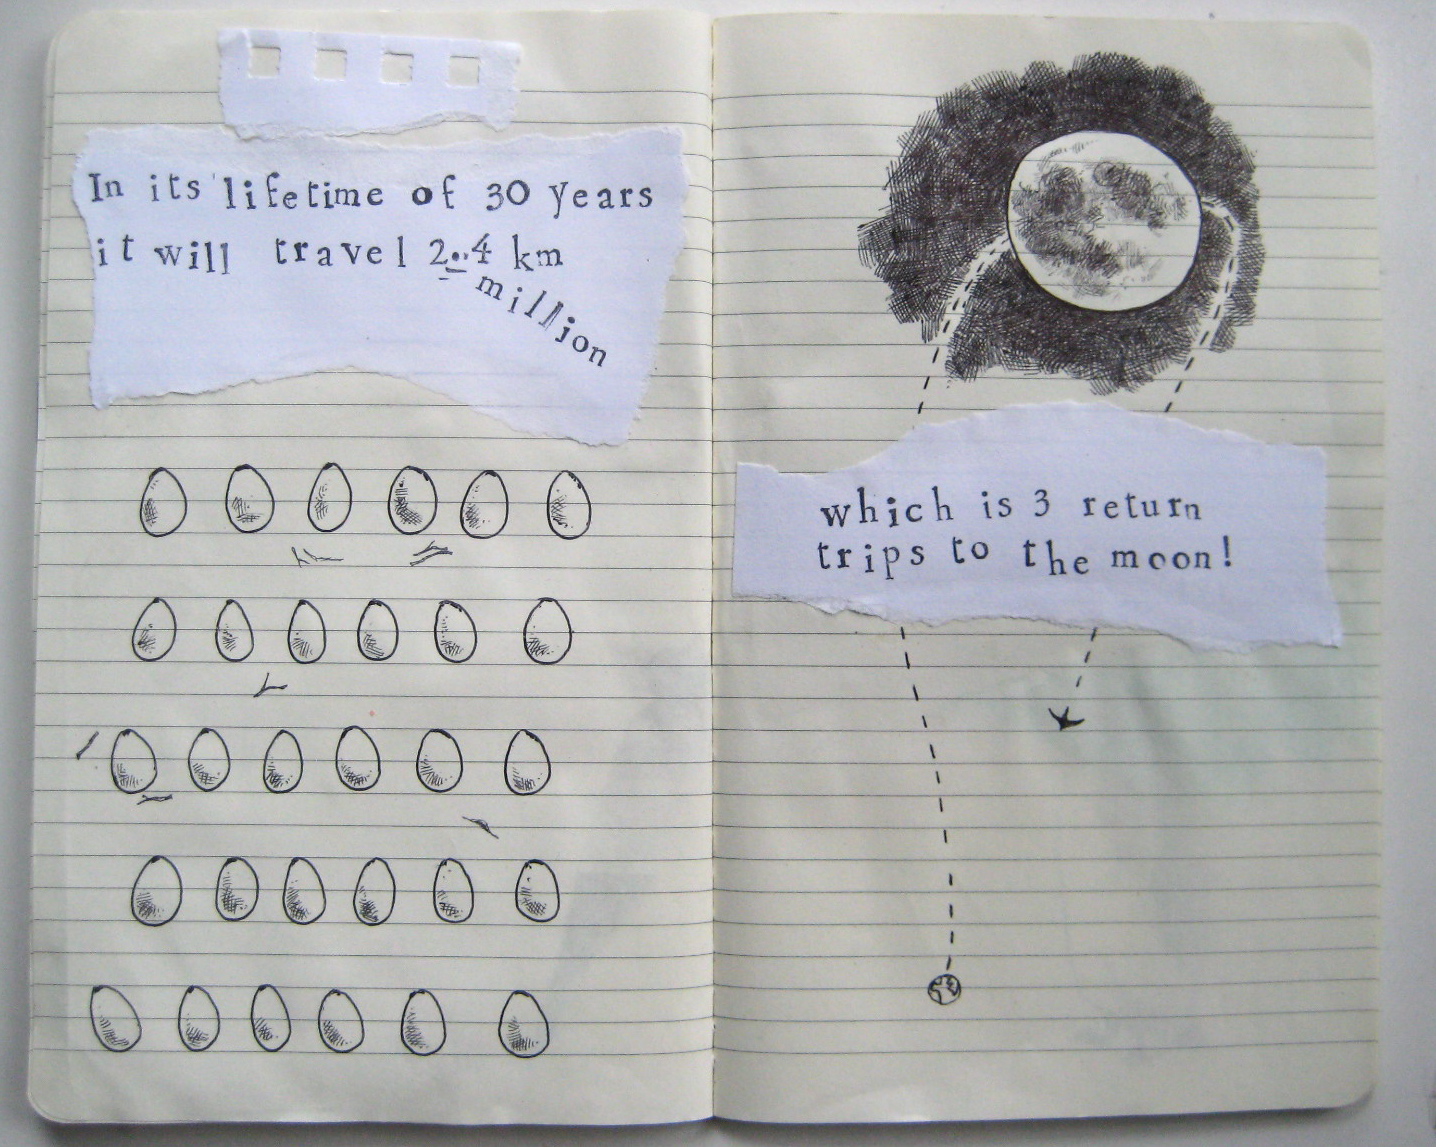 In its lifetime of 30 years
it will travel 2.4 km
million
which is 3 return
trips to the moon!